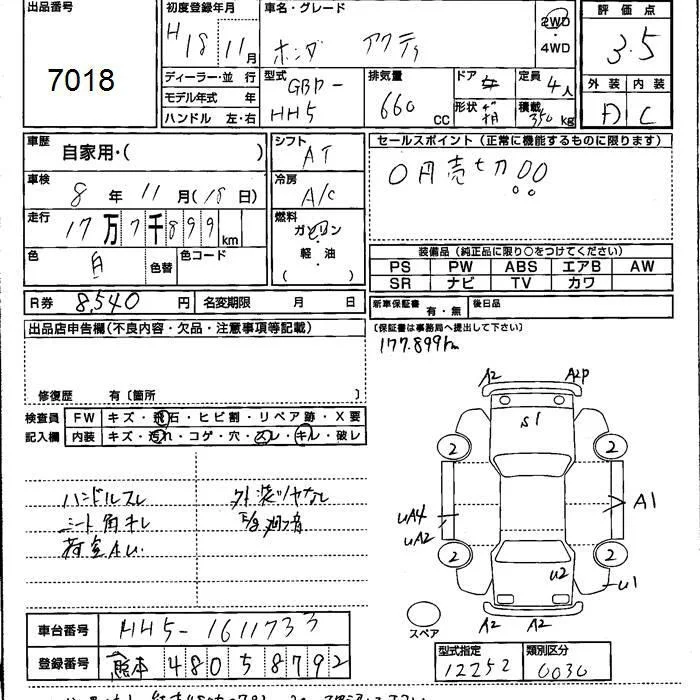 出品番号
7018
初度登録年月
H18 11月
車名・グレード
ホンダ アクティ
2WD
・
4WD
評価点
3.5
ディーラー・並行
モデル年式 年
ハンドル 左・右
型式
GBD-
HH5
排気量
660 CC
ドア
形状 箱
定員
4人
積載
350kg
外装 内装
D C
車歴
自家用・( )
シフト
AT
セールスポイント(正常に機能するものに限ります)
0円売切
車検
8年 11月(18日)
冷房
A/C
走行
17万7千899km
燃料
ガソリン
・
軽油
( )
色
白
色替
色コード
装備品(純正品に限り○をつけてください)
PS PW ABS エアB AW
SR ナビ TV カワ
R券 8,540円 名変期限 月 日
新車保証書 有・無 後日品
(保証書は事務局へ提出して下さい)
177.899km
出品店申告欄(不良内容・欠品・注意事項等記載)
修復歴 有〔箇所 〕
検査員
記入欄
FW キズ・飛石・ヒビ割・リペア跡・X要
内装 キズ・汚れ・コゲ・穴・スレ・キレ・破レ
ハンドルスレ
シート角キレ
荷室AU.
外装ツヤなし
A2 A2P
S1
2 2
UA4
UA2
A1
2 2
U2
U1
A2 A2
スペア
車台番号 HH5-1611733
登録番号 熊本 480 5 8792
型式指定
12252
類別区分
0030